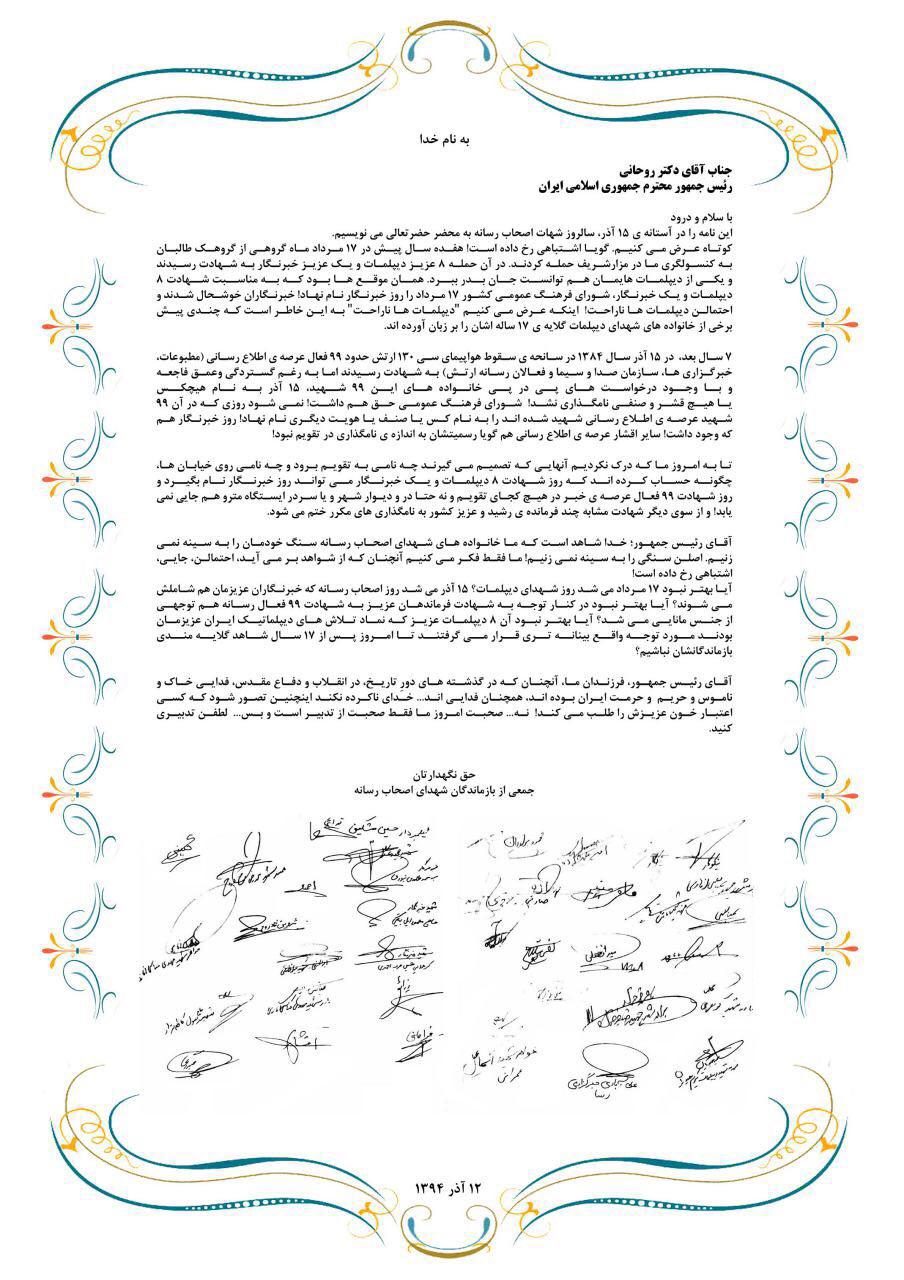 به نام خدا
جناب آقای دکتر روحانی
رئیس جمهور محترم جمهوری اسلامی ایران
با سلام و درود
این نامه را در آستانه ی ۱۵ آذر، سالروز شهات اصحاب رسانه به محضر حضرتعالی می نویسیم.
کوتاه عرض می کنیم. گویا اشتباهی رخ داده است! هفده سال پیش در ۱۷ مرداد ماه گروهی از گروهک طالبان
به کنسولگری ما در مزارشریف حمله کردند. در آن حمله ۸ عزیز دیپلمات و یک عزیز خبرنگار به شهادت رسیدند
و یکی از دیپلمات هایمان هم توانست جان بدر ببرد. همان موقع ها بود که به مناسبت شهادت ۸
دیپلمات و یک خبرنگار، شورای فرهنگ عمومی کشور ۱۷ مرداد را روز خبرنگار نام نهاد! خبرنگاران خوشحال شدند و
احتمالن دیپلمات ها ناراحت! اینکه عرض می کنیم "دیپلمات ها ناراحت" به این خاطر است که چندی پیش
برخی از خانواده های شهدای دیپلمات گلایه ی ۱۷ ساله اشان را بر زبان آورده اند.
۷ سال بعد، در ۱۵ آذر سال ۱۳۸۴ در سانحه ی سقوط هواپیمای سی ۱۳۰ ارتش حدود ۹۹ فعال عرصه ی اطلاع رسانی (مطبوعات،
خبرگزاری ها، سازمان صدا و سیما و فعالان رسانه ارتش) به شهادت رسیدند اما به رغم گستردگی وعمق فاجعه
و با وجود درخواست های پی در پی خانواده های این ۹۹ شهید، ۱۵ آذر به نام هیچکس
یا هیچ قشر و صنفی نامگذاری نشد! شورای فرهنگ عمومی حق هم داشت! نمی شود روزی که در آن ۹۹
شهید عرصه ی اطلاع رسانی شهید شده اند را به نام کس یا صنف یا هویت دیگری نام نهاد! روز خبرنگار هم
که وجود داشت! سایر اقشار عرصه ی اطلاع رسانی هم گویا رسمیتشان به اندازه ی نامگذاری در تقویم نبود!
تا به امروز ما که درک نکردیم آنهایی که تصمیم می گیرند چه نامی به تقویم برود و چه نامی روی خیابان ها،
چگونه حساب کرده اند که روز شهادت ۸ دیپلمات و یک خبرنگار می تواند روز خبرنگار نام بگیرد و
روز شهادت ۹۹ فعال عرصه ی خبر در هیچ کجای تقویم و نه حتا در و دیوار شهر و یا سردر ایستگاه مترو هم جایی نمی
یابد! و از سوی دیگر شهادت مشابه چند فرمانده ی رشید و عزیز کشور به نامگذاری های مکرر ختم می شود.
آقای رئیس جمهور؛ خدا شاهد است که ما خانواده های شهدای اصحاب رسانه سنگ خودمان را به سینه نمی
زنیم. اصلن سنگی را به سینه نمی زنیم! ما فقط فکر می کنیم آنچنان که از شواهد بر می آید، احتمالن، جایی،
اشتباهی رخ داده است!
آیا بهتر نبود ۱۷ مرداد می شد روز شهدای دیپلمات؟ ۱۵ آذر می شد روز اصحاب رسانه که خبرنگاران عزیزمان هم شاملش
می شوند؟ آیا بهتر نبود در کنار توجه به شهادت فرماندهان عزیز به شهادت ۹۹ فعال رسانه هم توجهی
از جنس مانایی می شد؟ آیا بهتر نبود آن ۸ دیپلمات عزیز که نماد تلاش های دیپلماتیک ایران عزیزمان
بودند مورد توجه واقع بینانه تری قرار می گرفتند تا امروز پس از ۱۷ سال شاهد گلایه مندی
بازماندگانشان نباشیم؟
آقای رئیس جمهور، فرزندان ما، آنچنان که در گذشته های دور تاریخ، در انقلاب و دفاع مقدس، فدایی خاک و
ناموس و حریم و حرمت ایران بوده اند، همچنان فدایی اند... خدای ناکرده نکند اینچنین تصور شود که کسی
اعتبار خون عزیزش را طلب می کند! نه... صحبت امروز ما فقط صحبت از تدبیر است و بس... لطفن تدبیری
کنید.
حق نگهدارتان
جمعی از بازماندگان شهدای اصحاب رسانه
۱۲ آذر ۱۳۹۴